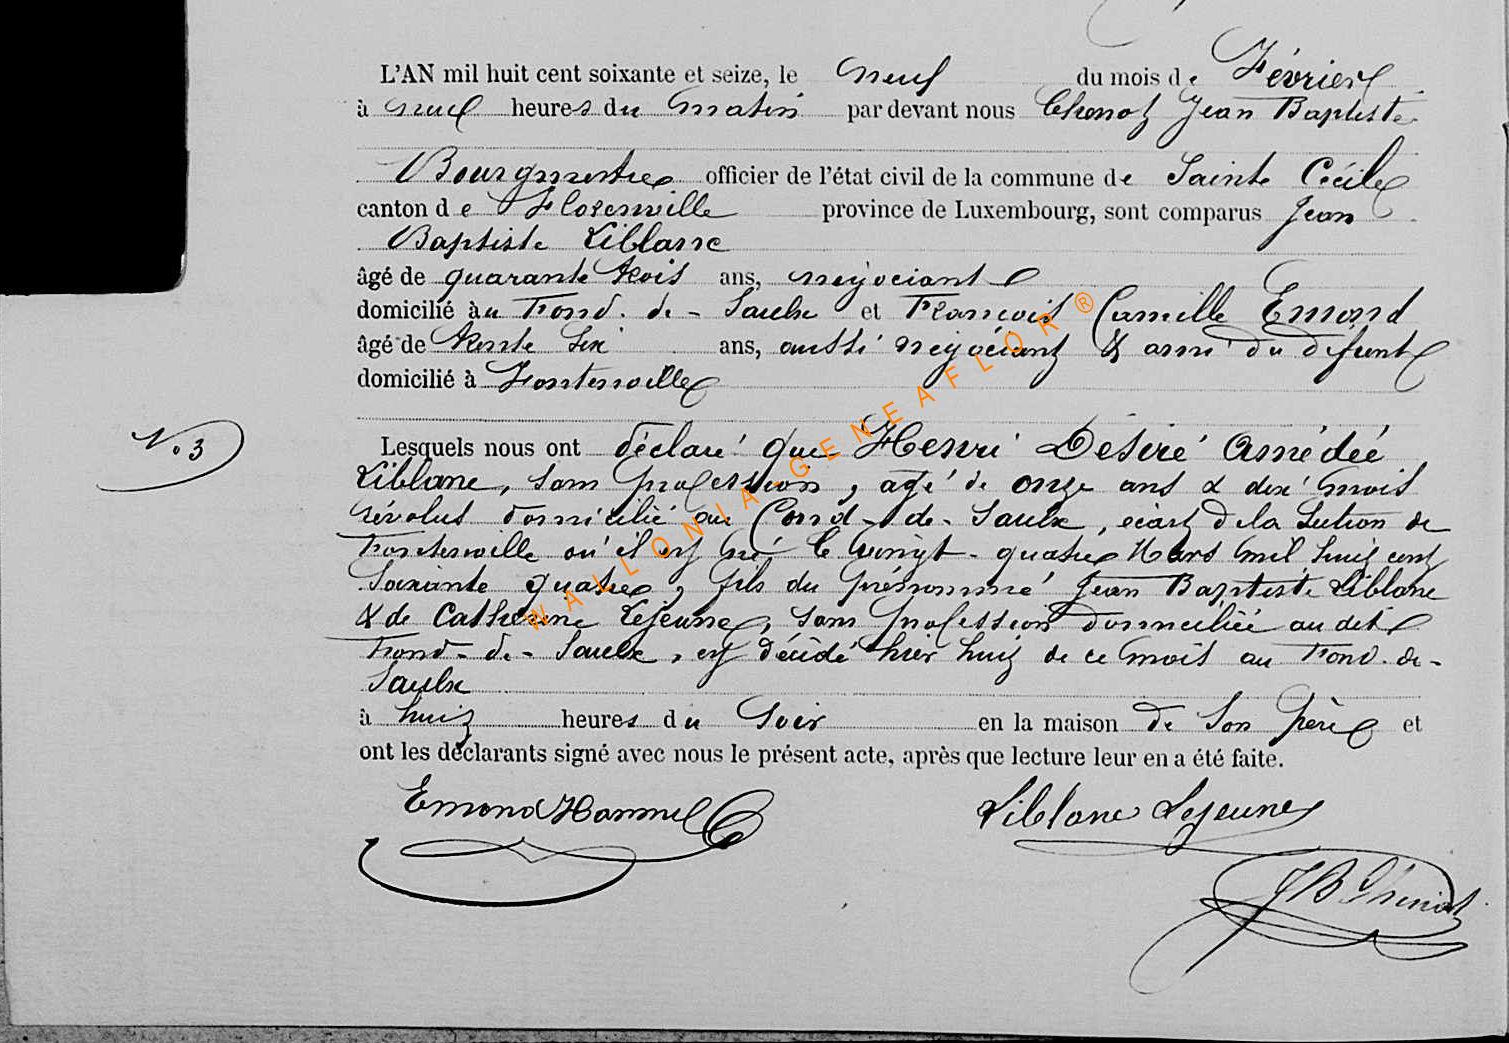 L'AN mil huit cent soixante et seize, le neuf du mois de Février
à neuf heures du matin par devant nous Chenot Jean Baptiste
Bourgmestre officier de l'état civil de la commune de Sainte Cécile
canton de Florenville province de Luxembourg, sont comparus Jean
Baptiste Liblanc
âgé de quarante trois ans, négociant
domicilié au Fond-de-Saulx et François Camille Emond
âgé de trente six ans, aussi négociant & ami du défunt
domicilié à Fontenoille
No 3
Lesquels nous ont déclaré que Henri Désiré Amédée
Liblanc, sans profession, agé de onze ans & dix mois
révolus domicilié au Fond-de-Saulx, écart de la Section de
Fontenoille où il est né le vingt-quatre Mars mil huit cent
Soixante quatre, fils du prénommé Jean Baptiste Liblanc
& de Catherine Lejeune, sans profession domiciliée au dit
Fond-de-Saulx, est décédé hier huit de ce mois au Fond-de-
Saulx
à huit heures du Soir en la maison de Son père et
ont les déclarants signé avec nous le présent acte, après que lecture leur en a été faite.
Emond Liblanc Lejeune
JB Chenot
WALLONIA GENEAFLOR®